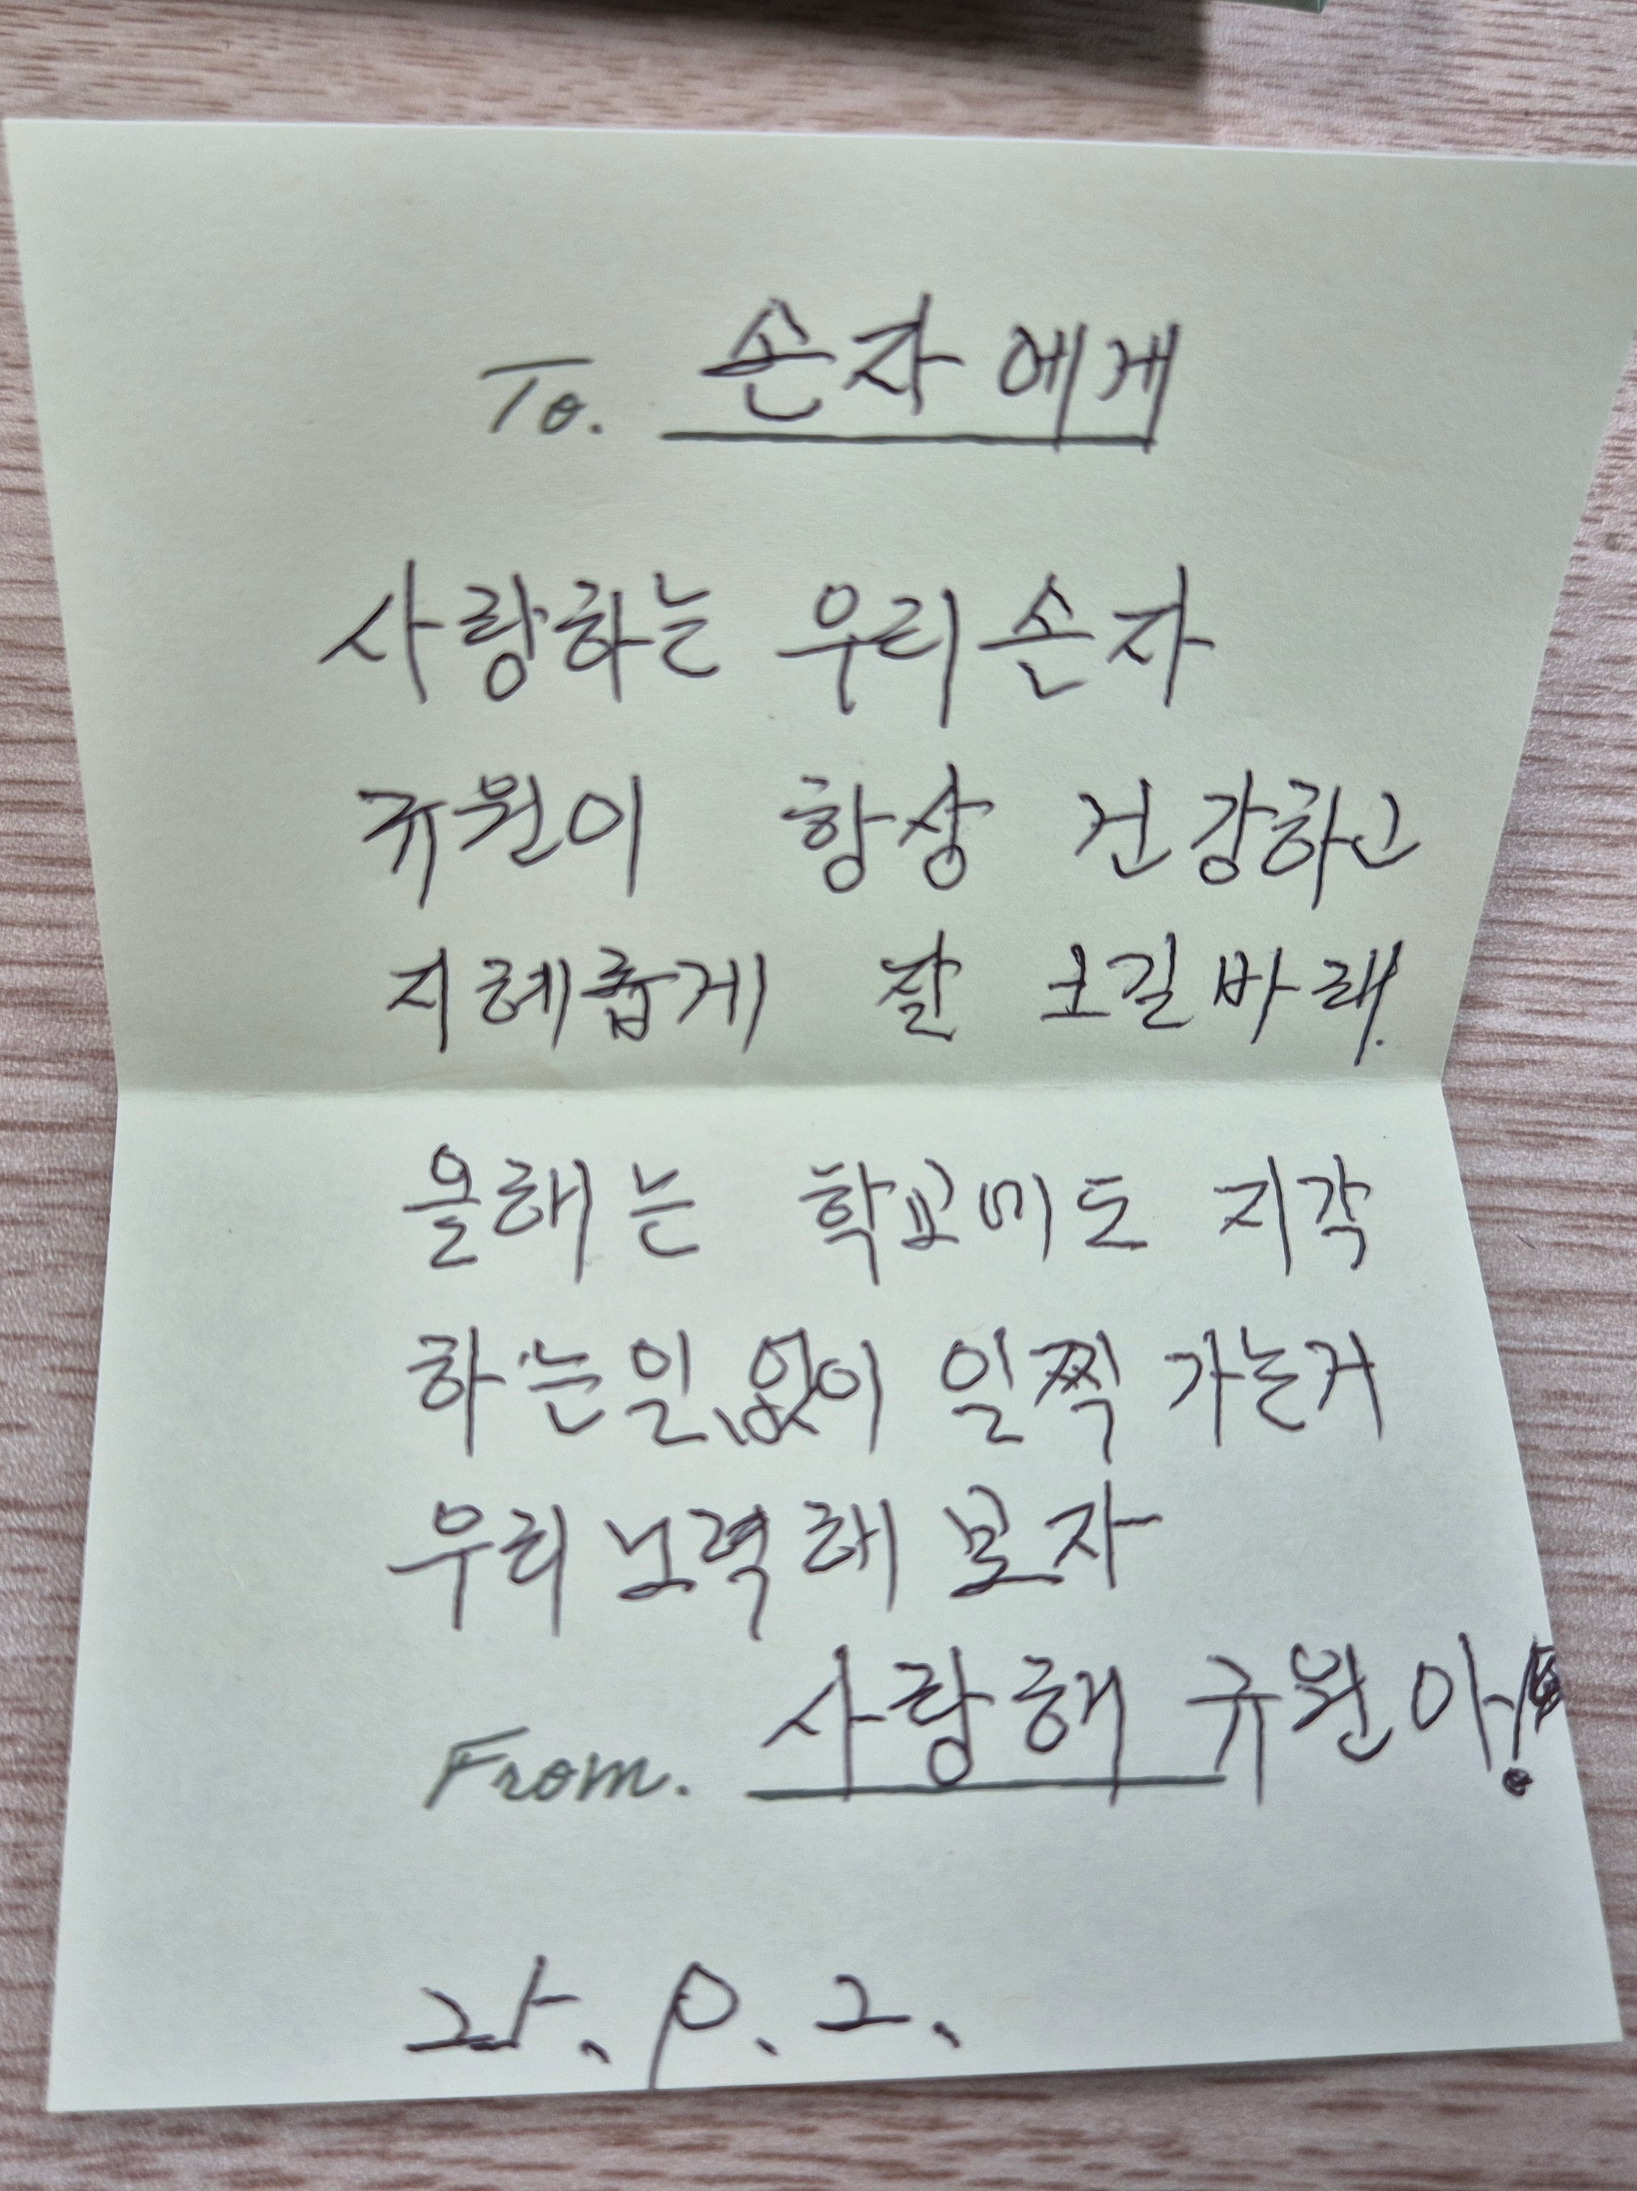 To. 손자에게
사랑하는 우리손자
규원이 항상 건강하고
지혜롭게 잘 크길바래.
올해는 학교에도 지각
하는일 없이 일찍 가는거
우리 노력해 보자
From. 사랑해 규원아!